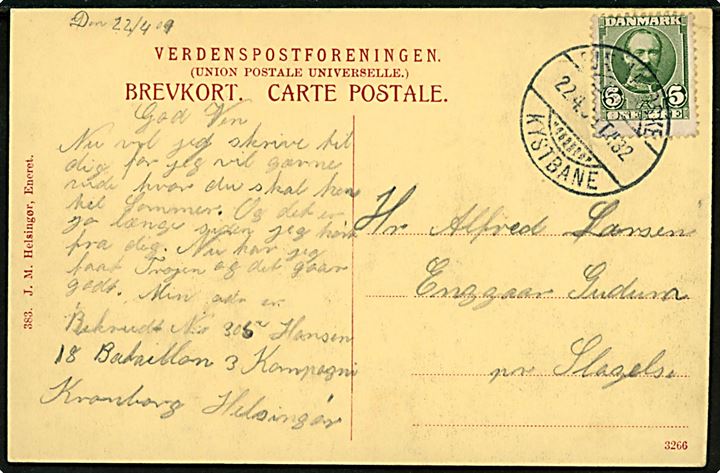 Den 22/4 09
VERDENSPOSTFORENINGEN.
(UNION POSTALE UNIVERSELLE.)
BREVKORT. CARTE POSTALE.
DANMARK
5 5
ØRE
KYSTBANE
God Ven
Nu vil jeg skrive til
dig for jeg vil gærne
vide hvor du skal hen
til Sommer. Og det er
jo længe siden jeg hørte
fra dig. Nu har jeg
faaet Trøjen og det gaar
godt. Min adr er
Rekrudt No 306 Hansen
18 Bataillon 3 Kompagni
Kronborg Helsingør
Hr Alfred Larsen
Enggaar Gudum
pr Slagelse
383. J. M. Helsingør, Eneret.
3266